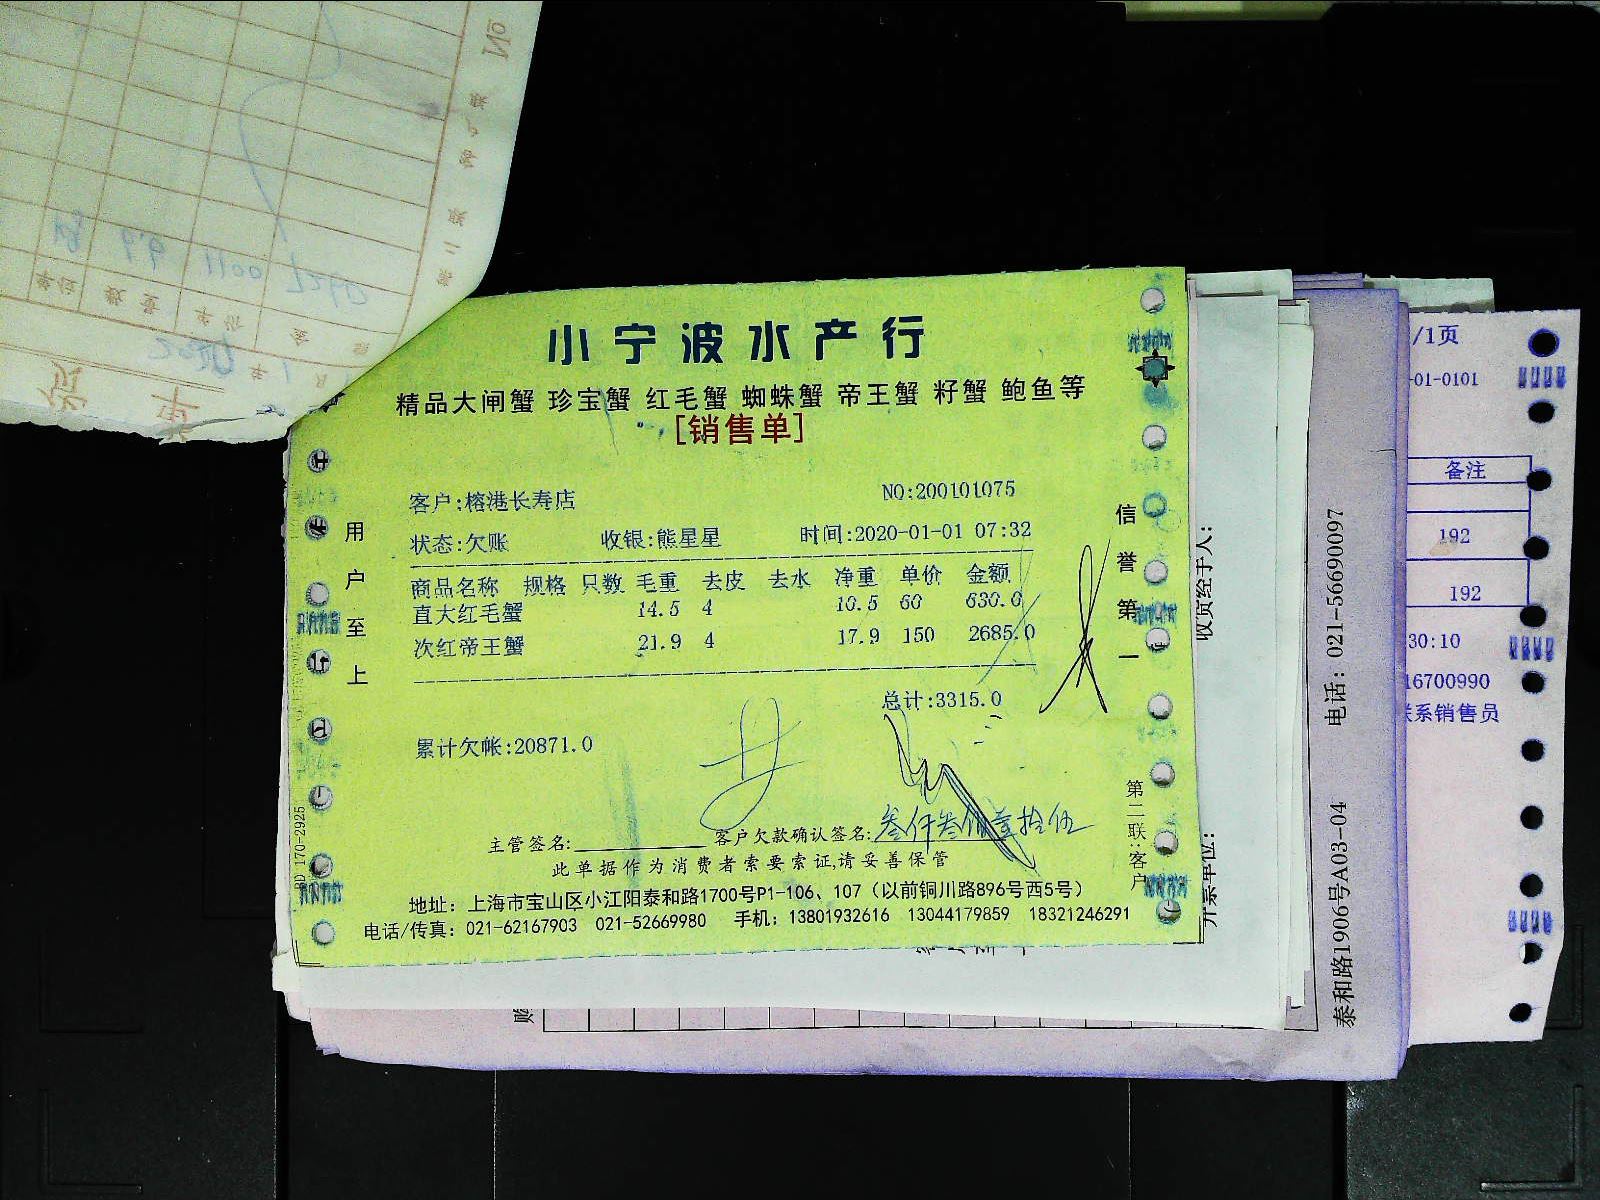 小宁波水产行
精品大闸蟹 珍宝蟹 红毛蟹 蜘蛛蟹 帝王蟹 籽蟹 鲍鱼等
[销售单]
客户:榕港长寿店 NO:200101075
状态:欠账 收银:熊星星 时间:2020-01-01 07:32
商品名称 规格 只数 毛重 去皮 去水 净重 单价 金额
直大红毛蟹 14.5 4 10.5 60 630.0
次红帝王蟹 21.9 4 17.9 150 2685.0
总计:3315.0
累计欠帐:20871.0
主管签名: 客户欠款确认签名:叁仟叁佰壹拾伍
此单据作为消费者索要索证,请妥善保管
地址：上海市宝山区小江阳泰和路1700号P1-106、107（以前铜川路896号西5号）
电话/传真：021-62167903 021-52669980 手机：13801932616 13044179859 18321246291
用户至上
信誉第一
第二联:客户
170-2925
收货经手人：
开票单位：
电话：021-56690097
泰和路1906号A03-04
/1页
-01-0101
备注
192
192
30:10
16700990
联系销售员
No